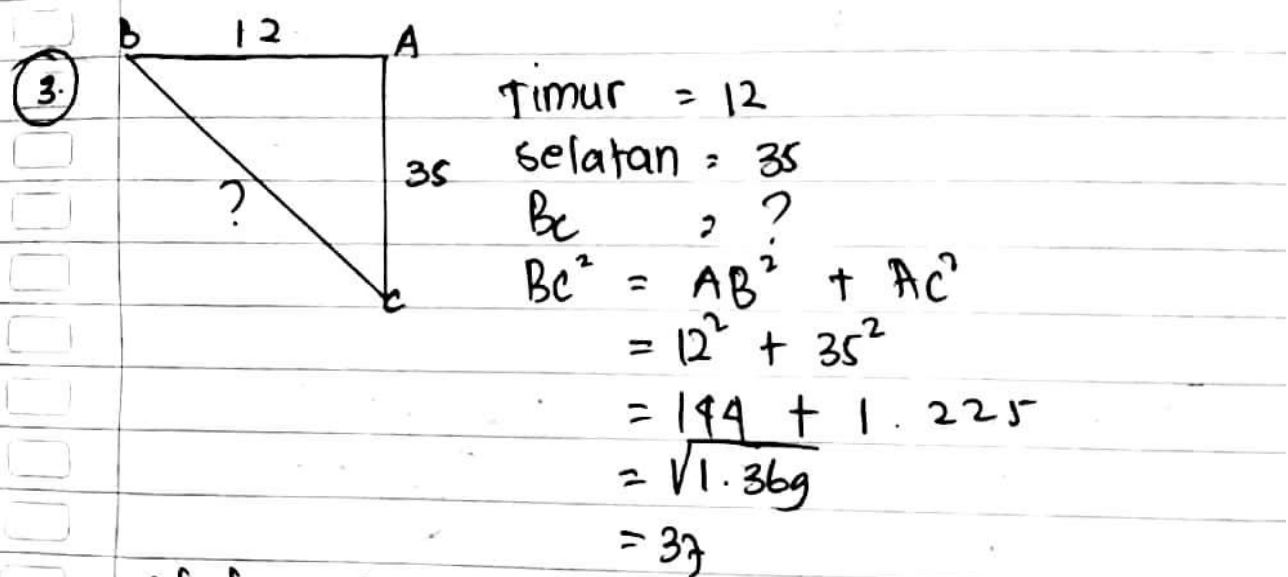 3.
B 12 A
35
?
C
Timur = 12
Selatan = 35
BC = ?
BC² = AB² + AC²
= 12² + 35²
= 144 + 1.225
= √1.369
= 37